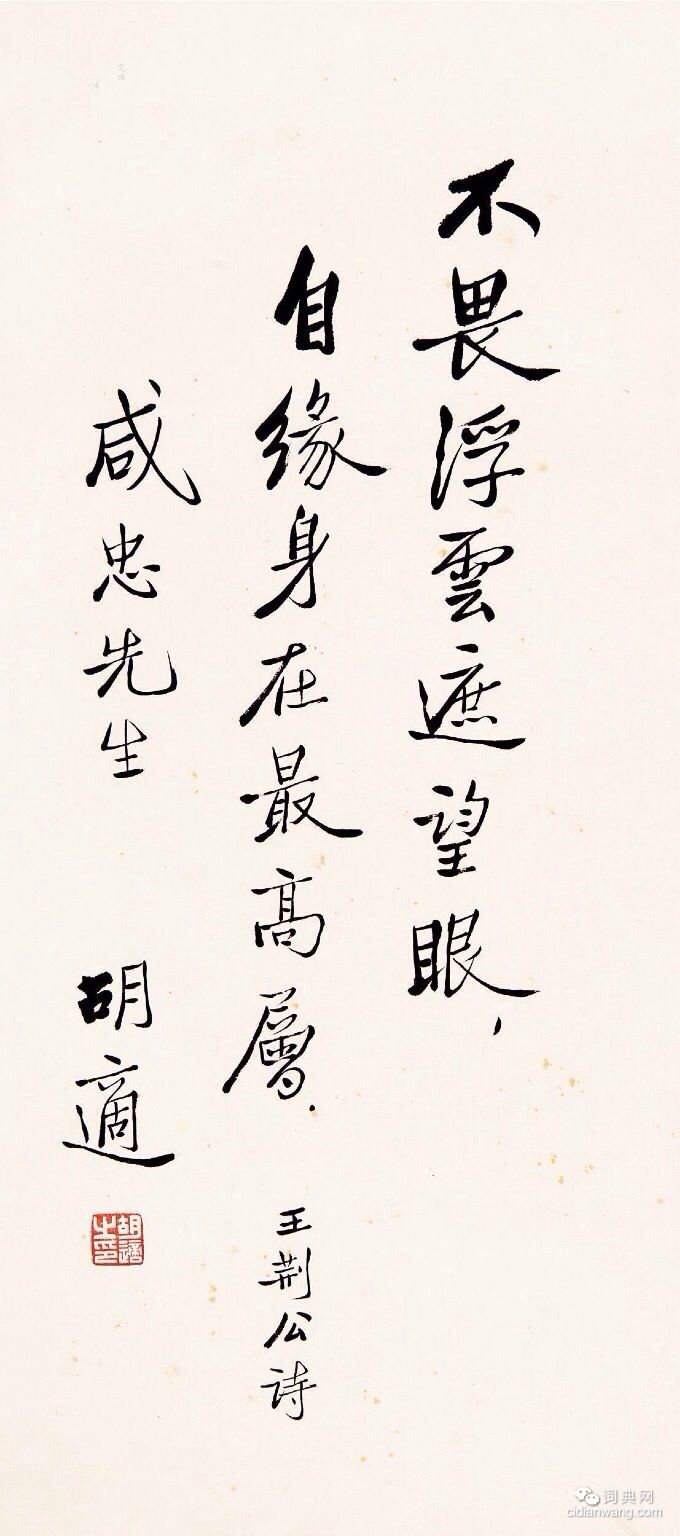 不畏浮雲遮望眼，
自缘身在最高層．
王荆公诗
咸忠先生
胡適
胡適之印
词典网
cidianwang.com